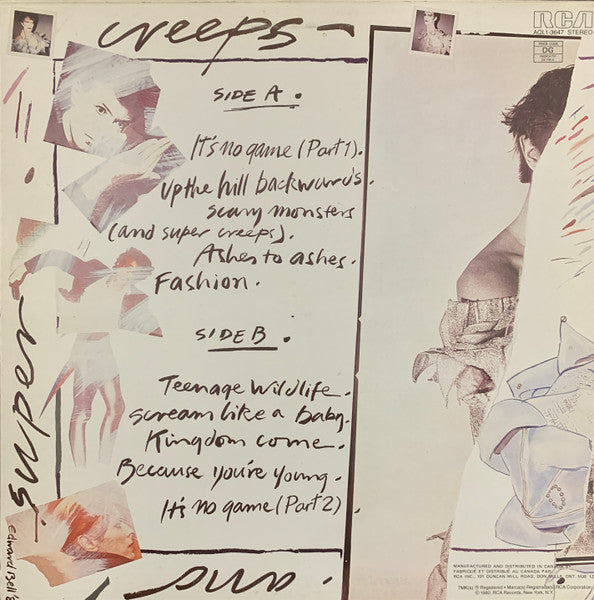 creeps -
RCA
AQL1-3647 STEREO
DG
SIDE A.
It's no game (Part 1).
Up the hill backwards.
scary monsters
(and super creeps).
Ashes to ashes.
Fashion.
SIDE B.
Teenage Wildlife.
scream like a baby.
Kingdom come.
Because you're young.
It's no game (Part 2)
super
and
Edward Bell '8
MANUFACTURED AND DISTRIBUTED IN CANADA
FABRIQUÉ ET DISTRIBUÉ AU CANADA PAR
RCA INC., 101 DUNCAN MILL ROAD, DON MILLS, ONT. M3B 1Z
TMK(s) ® Registered • Marca(s) Registrada(s) RCA Corporation
© 1980, RCA Records, New York, N.Y.